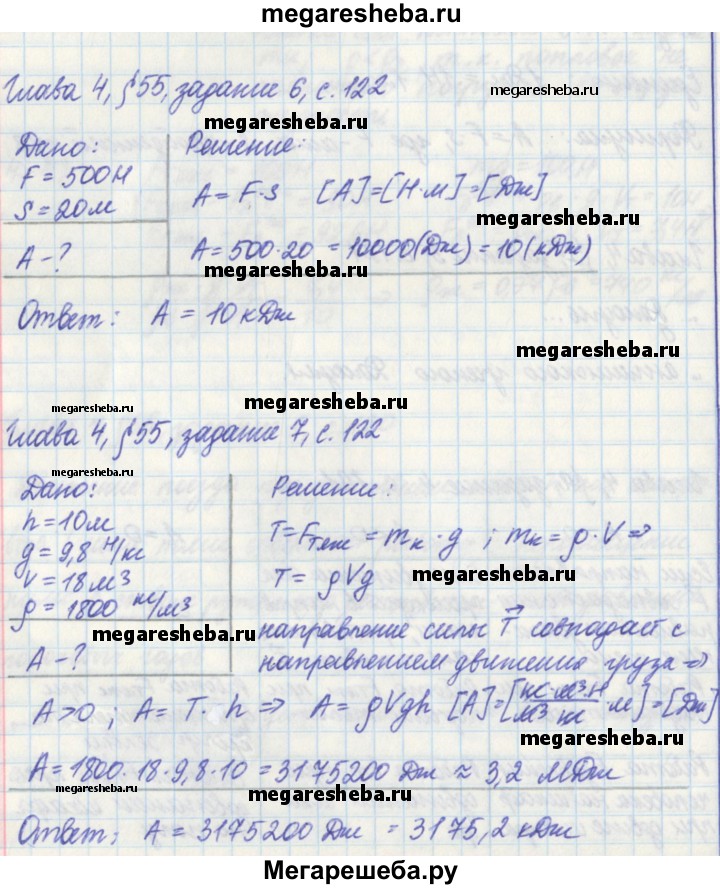 megaresheba.ru
Глава 4, §55, задание 6, с. 122
megaresheba.ru
megaresheba.ru
Дано: Решение:
F = 500 Н
S = 20 м
A = F·s [A]=[Н·м]=[Дж]
megaresheba.ru
A - ? A = 500·20 = 10000(Дж) = 10(кДж)
megaresheba.ru
Ответ: A = 10 кДж
megaresheba.ru
megaresheba.ru
megaresheba.ru
Глава 4, §55, задание 7, с. 122
megaresheba.ru
megaresheba.ru
Дано: Решение:
h = 10 м
g = 9,8 Н/кг
V = 18 м³
ρ = 1800 кг/м³
T = Fтяж = mк·g ; mк = ρ·V ⇒
T = ρVg
megaresheba.ru
megaresheba.ru
направление силы T⃗ совпадает с
A - ? направлением движения груза ⇒
A>0 ; A = T·h ⇒ A = ρVgh [A]=[кг·м³·Н/м³·кг·м]=[Дж]
megaresheba.ru
A = 1800·18·9,8·10 = 3175200 Дж ≈ 3,2 МДж
megaresheba.ru
Ответ: A = 3175200 Дж = 3175,2 кДж
Мегарешеба.ру